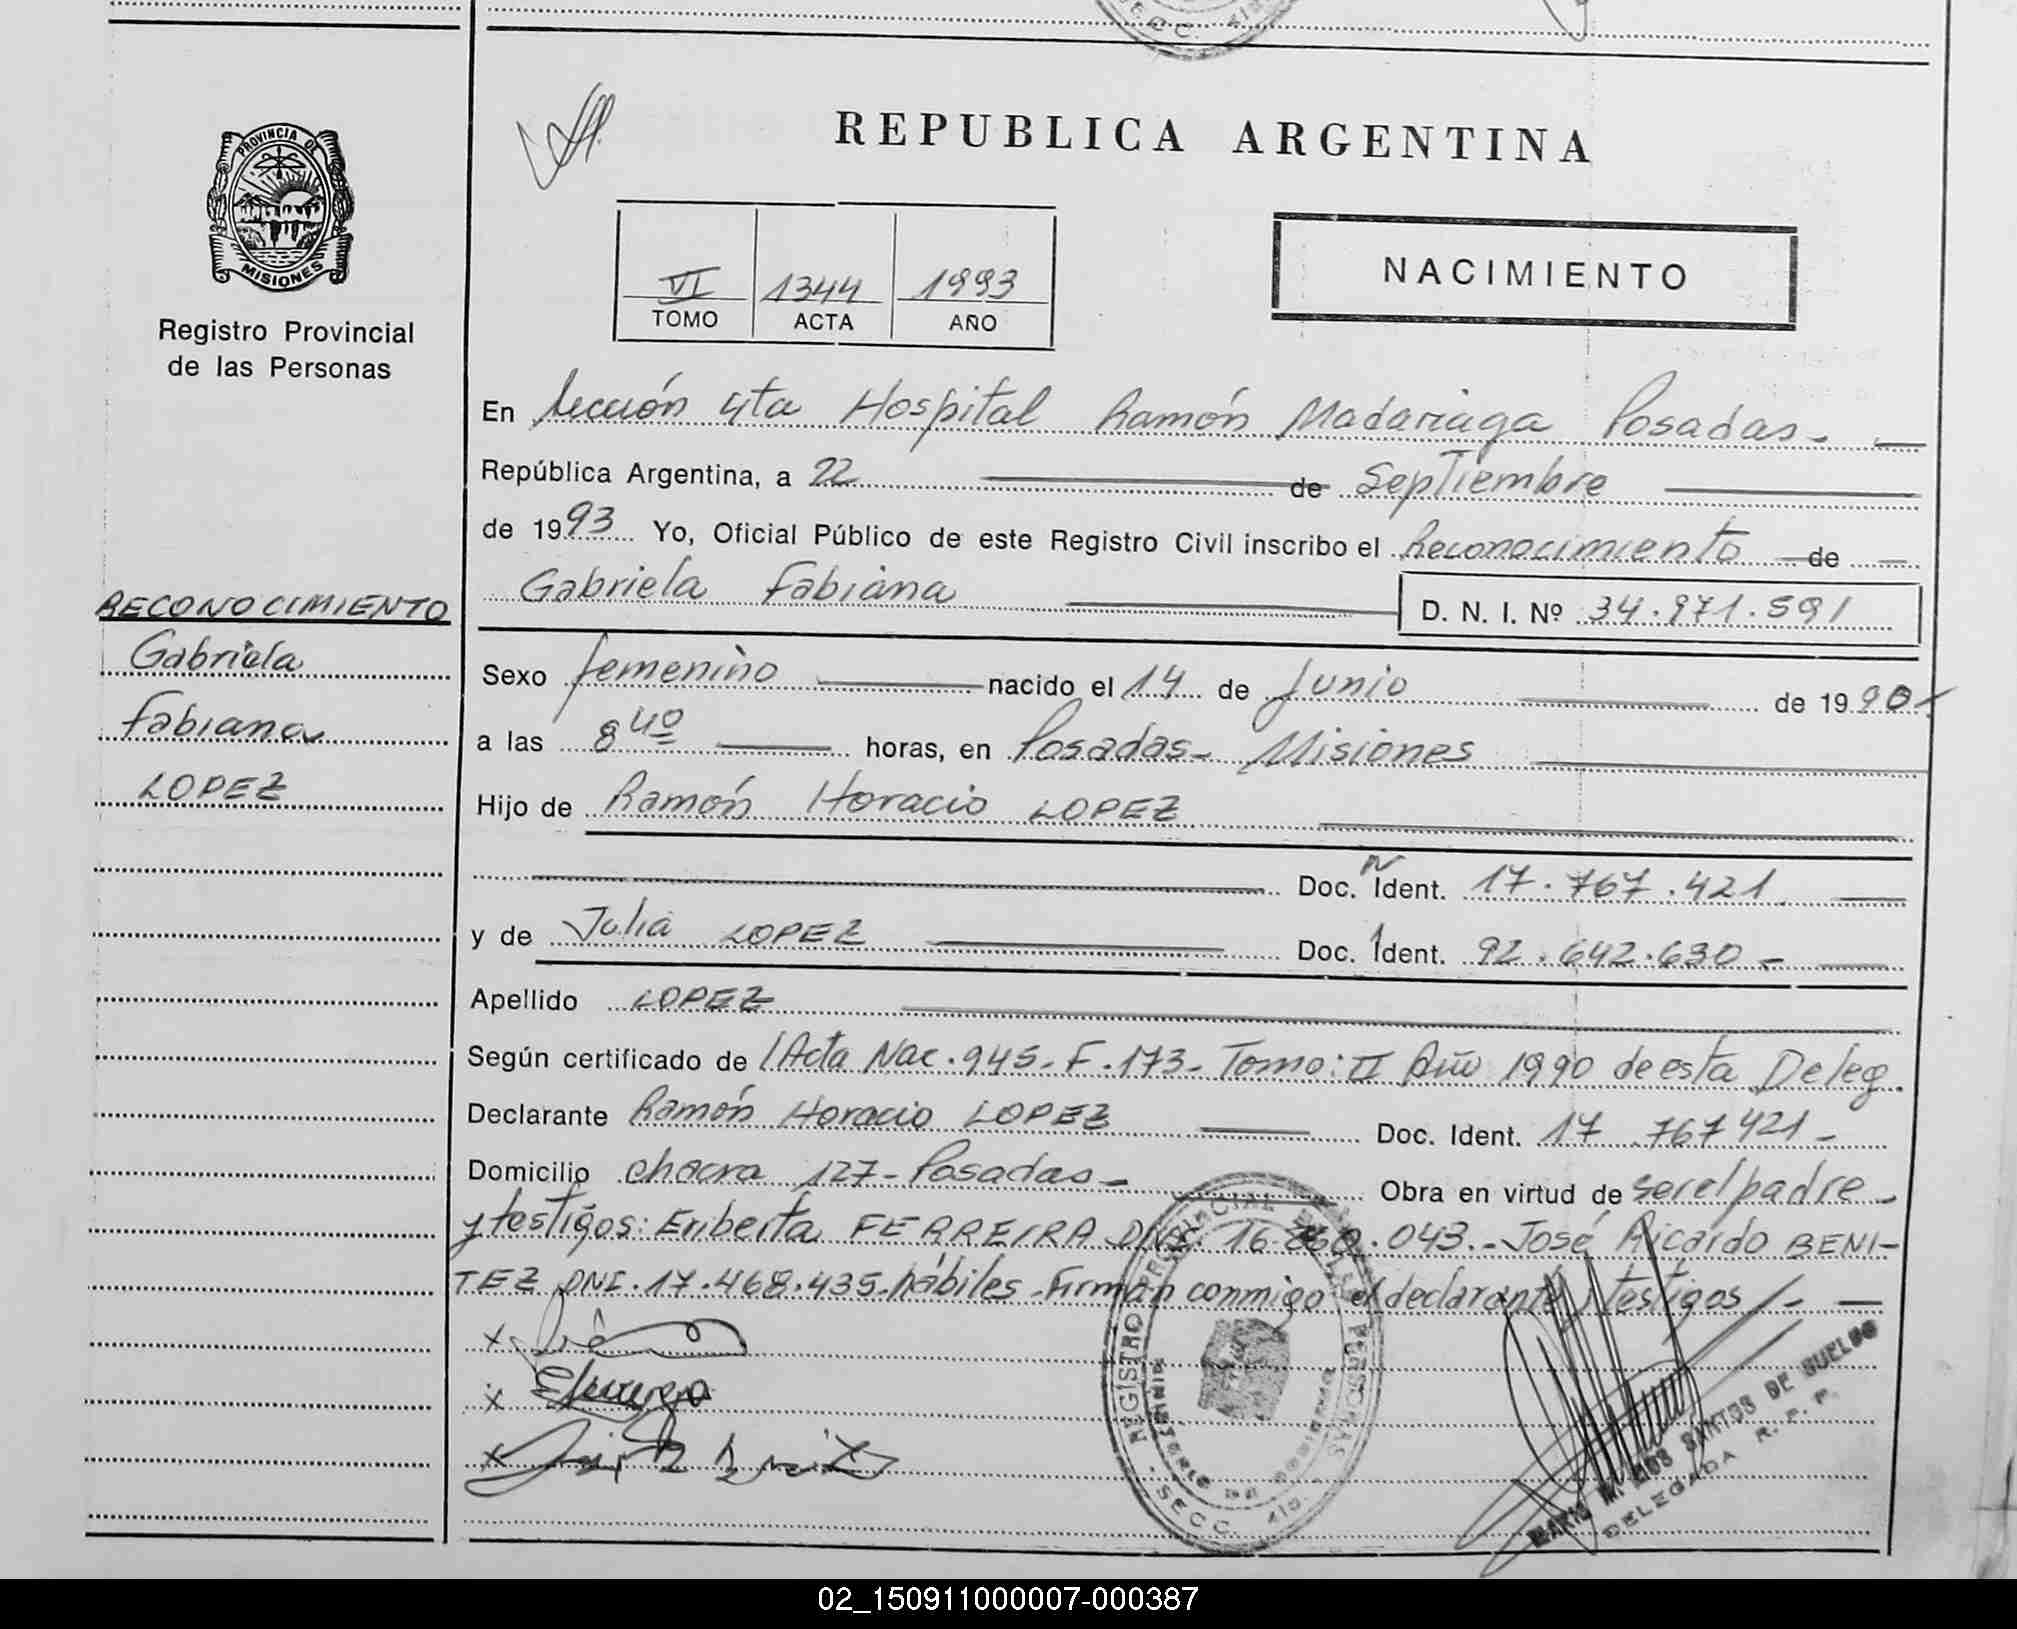 REPUBLICA ARGENTINA
PROVINCIA DE
MISIONES
Registro Provincial
de las Personas
VI 1344 1993
TOMO ACTA AÑO
NACIMIENTO
En Sección 4ta Hospital Ramón Madariaga Posadas.
República Argentina, a 22 de Septiembre
de 1993 Yo, Oficial Público de este Registro Civil inscribo el Reconocimiento de
Gabriela Fabiana D. N. I. Nº 34.971.591
RECONOCIMIENTO
Gabriela
Fabiana
LOPEZ
Sexo femenino nacido el 14 de Junio de 1990-
a las 8 40 horas, en Posadas- Misiones
Hijo de Ramón Horacio LOPEZ
Doc. Ident. 17.767.421
y de Julia LOPEZ Doc. Ident. 92.642.630-
Apellido LOPEZ
Según certificado de Acta Nac. 945- F.173- Tomo: II Año 1990 de esta Deleg.
Declarante Ramón Horacio LOPEZ Doc. Ident. 17 767421-
Domicilio chacra 127- Posadas- Obra en virtud de ser el padre
y testigos: Eriberta FERREIRA DNI. 16. .043.- José Ricardo BENI-
TEZ DNI.17.468.435.hábiles.-Firman conmigo el declarante y testigos/-
x
x
x
REGISTRO PROVINCIAL DE LAS PERSONAS
SECC. 4ta.
SANTOS DE SUELDO
DELEGADA R. P. P.
02_150911000007-000387